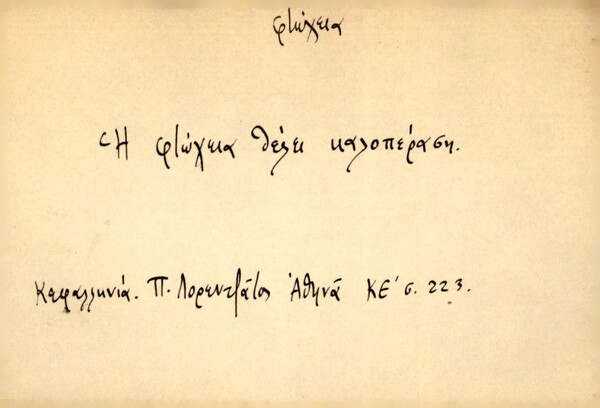 φτώχεια
Ἡ φτώχεια θέλει καλοπέραση.
Κεφαλληνία. Π. Λορεντζᾶτος Ἀθηνᾶ ΚΕ´ σ. 223.